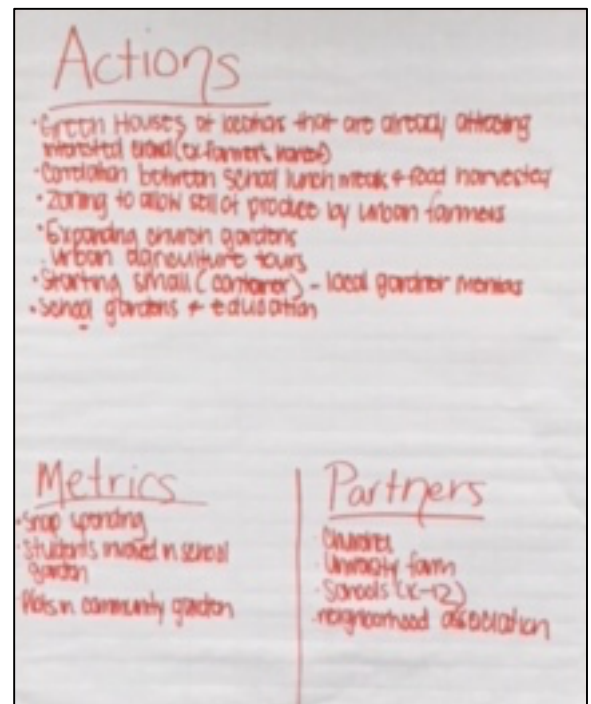 Actions
• Green Houses at locations that are already attracting
interested crowd (ex. farmers market)
• Correlation between school lunch meals + food harvested
• Zoning to allow sell of produce by urban farmers
• Expanding environ gardens
urban tours
• Starting small (container) - local gardner
• School gardens + education
Metrics
• Snap spending
• Students involved in school
garden
• Plots in community garden
Partners
• Churches
• University farm
• Schools (K-12)
• neighborhood association